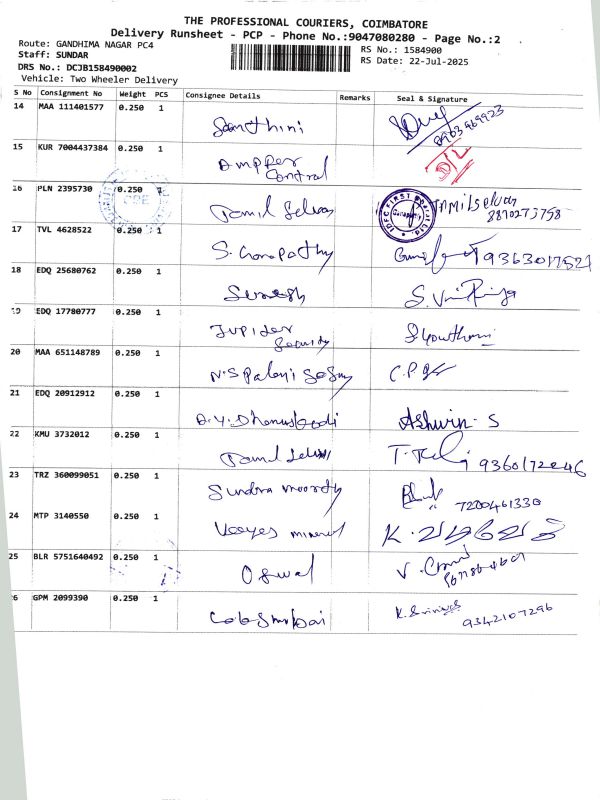 THE PROFESSIONAL COURIERS, COIMBATORE
Delivery Runsheet - PCP - Phone No.:9047080280 - Page No.:2
Route: GANDHIMA NAGAR PC4
RS No.: 1584900
Staff: SUNDAR
RS Date: 22-Jul-2025
DRS No.: DCJB158490002
Vehicle: Two Wheeler Delivery
S No Consignment No Weight PCS Consignee Details Remarks Seal & Signature
14 MAA 111401577 0.250 1
Santhini
8903469923
15 KUR 7004437384 0.250 1
Ampper
Control
D/L
16 PLN 2395730 0.250 1
Tamil Selvan
IDFC FIRST Bharat Ltd.
Tamilselvan
8870273758
17 TVL 4628522 0.250 1
S. Ganapathy
9363017521
18 EDQ 25680762 0.250 1
Suresh
19 EDQ 17780777 0.250 1
Jupiter
Security
S. Gowthami
20 MAA 651148789 0.250 1
N.S Palani Samy
21 EDQ 20912912 0.250 1
A.Y. Dhanuskodi
Ashwin. S
22 KMU 3732012 0.250 1
Tamil Selvan
9360172046
23 TRZ 360099051 0.250 1
Sundra moorthy
7200461330
24 MTP 3140550 0.250 1
mineral
25 BLR 5751640492 0.250 1
Oswal
6 GPM 2099390 0.250 1
K. Srinivas
9342107296